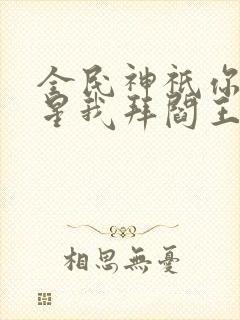 全民神祇你
星我拜閻王
相思無憂